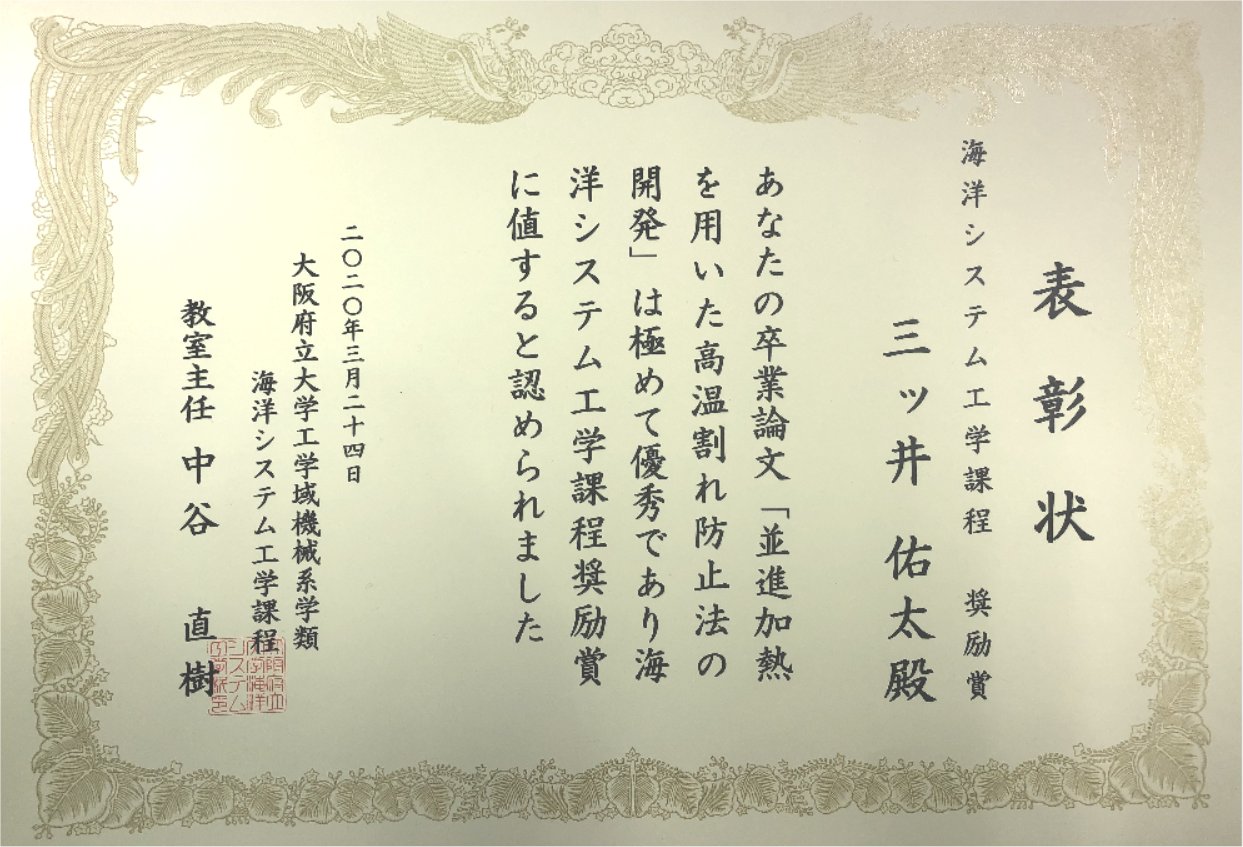 表彰状
海洋システム工学課程 奨励賞
三ッ井 佑太殿
あなたの卒業論文「並進加熱
を用いた高温割れ防止法の
開発」は極めて優秀であり海
洋システム工学課程奨励賞
に値すると認められました
二〇二〇年三月二十四日
大阪府立大学工学域機械系学類
海洋システム工学課程
教室主任 中谷 直樹